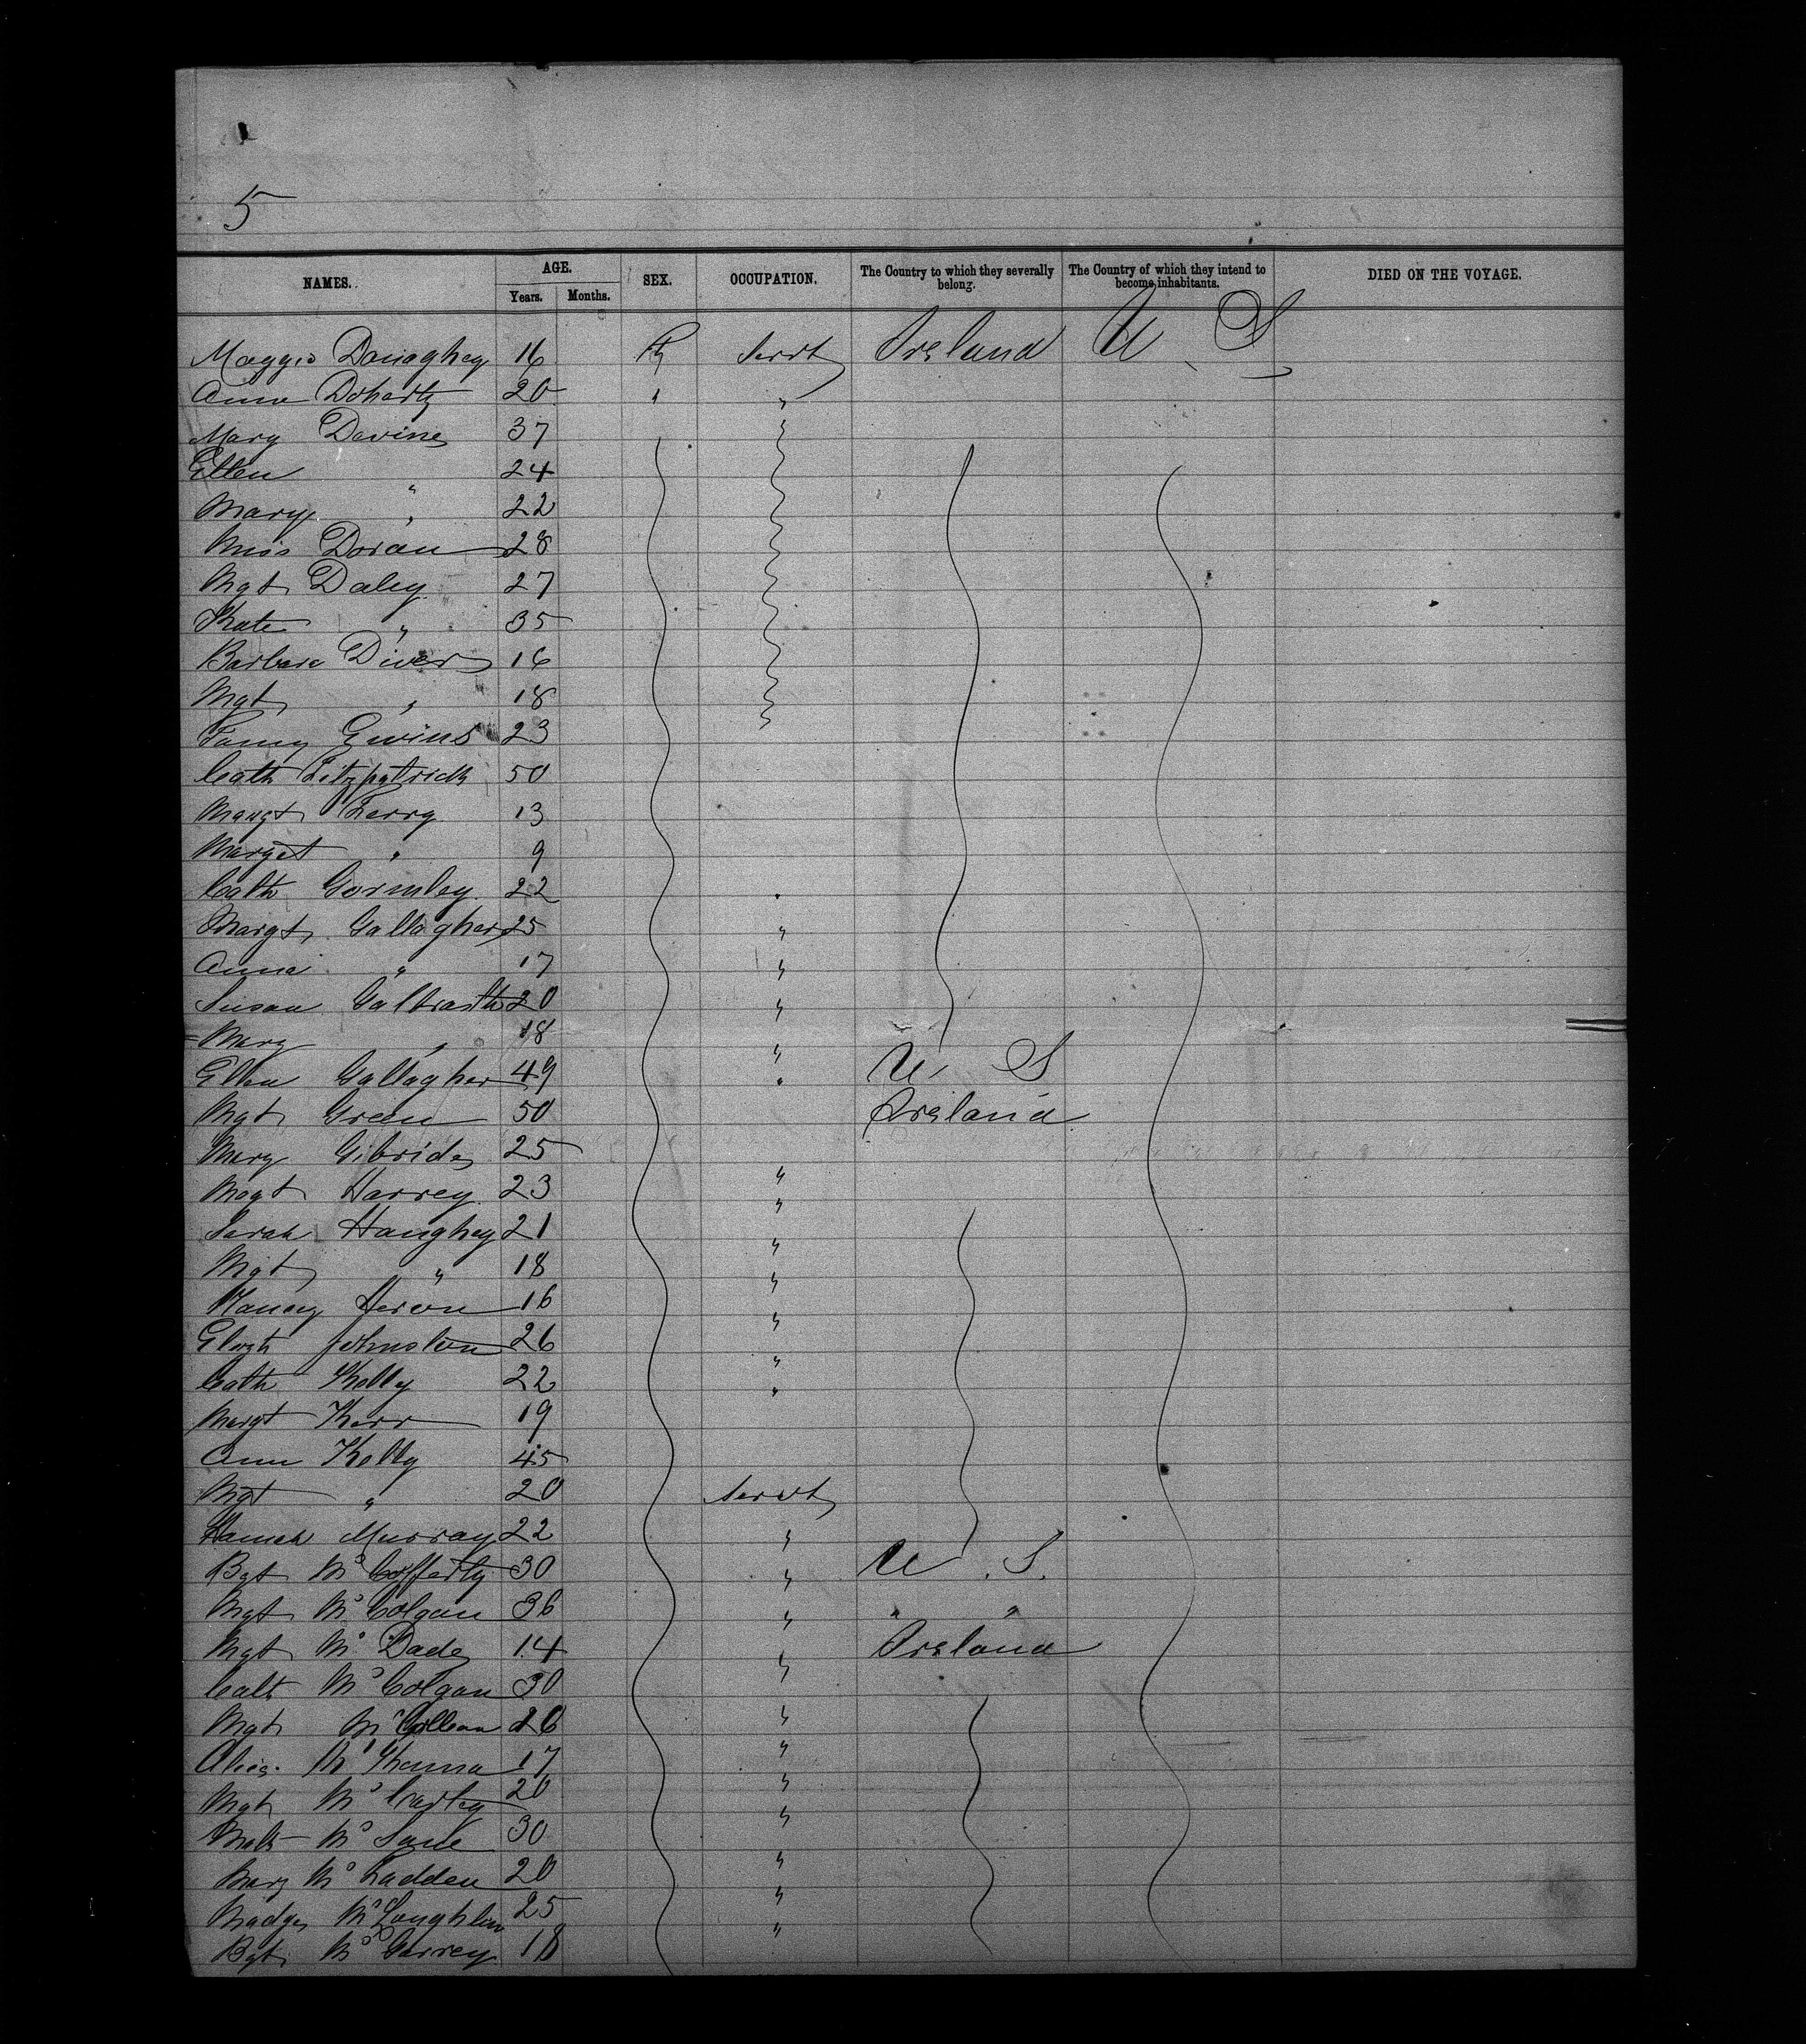 5
NAMES. AGE. SEX. OCCUPATION. The Country to which they severally belong. The Country of which they intend to become inhabitants. DIED ON THE VOYAGE.
Years. Months.
Maggie Donaghey 16 F Servt Ireland U S
Anna Doherty 20 " "
Mary Devine 37
Ellen " 24
Mary " 22
Miss Doran 28
Mgt Daley 27
Kate " 35
Barbara Diver 16
Mgt " 18
Fanny Ewins 23
Cath Fitzpatrick 50
Margt Ferry 13
Marget " 9
Cath Gormley 22 "
Margt Gallagher 25 "
Anna " 17 "
Susan Galbraith 20 "
Mary " 18 "
Ellen Gallagher 49 " U S
Mgt Green 50 Ireland
Mary Gibride 25 "
Magt Harvey 23 "
Sarah Haughey 21 "
Mgt " 18 "
Nancy Heron 16 "
Elizth Johnston 26 "
Cath Kelly 22 "
Margt Kerr 19
Ann Kelly 45
Mgt " 20 Servt
Hannah Murray 22 "
Bgt McCafferty 30 " U. S.
Mgt McColgan 36 " " "
Mgt McDade 14 " Ireland
Cath McColgan 30 "
Mgt 26 "
Alice McKenna 17 "
Mgt McCarty 20 "
McLane 30 "
Mary McFadden 20 "
Madge McLaughlin 25 "
Bgt McGarvey 18